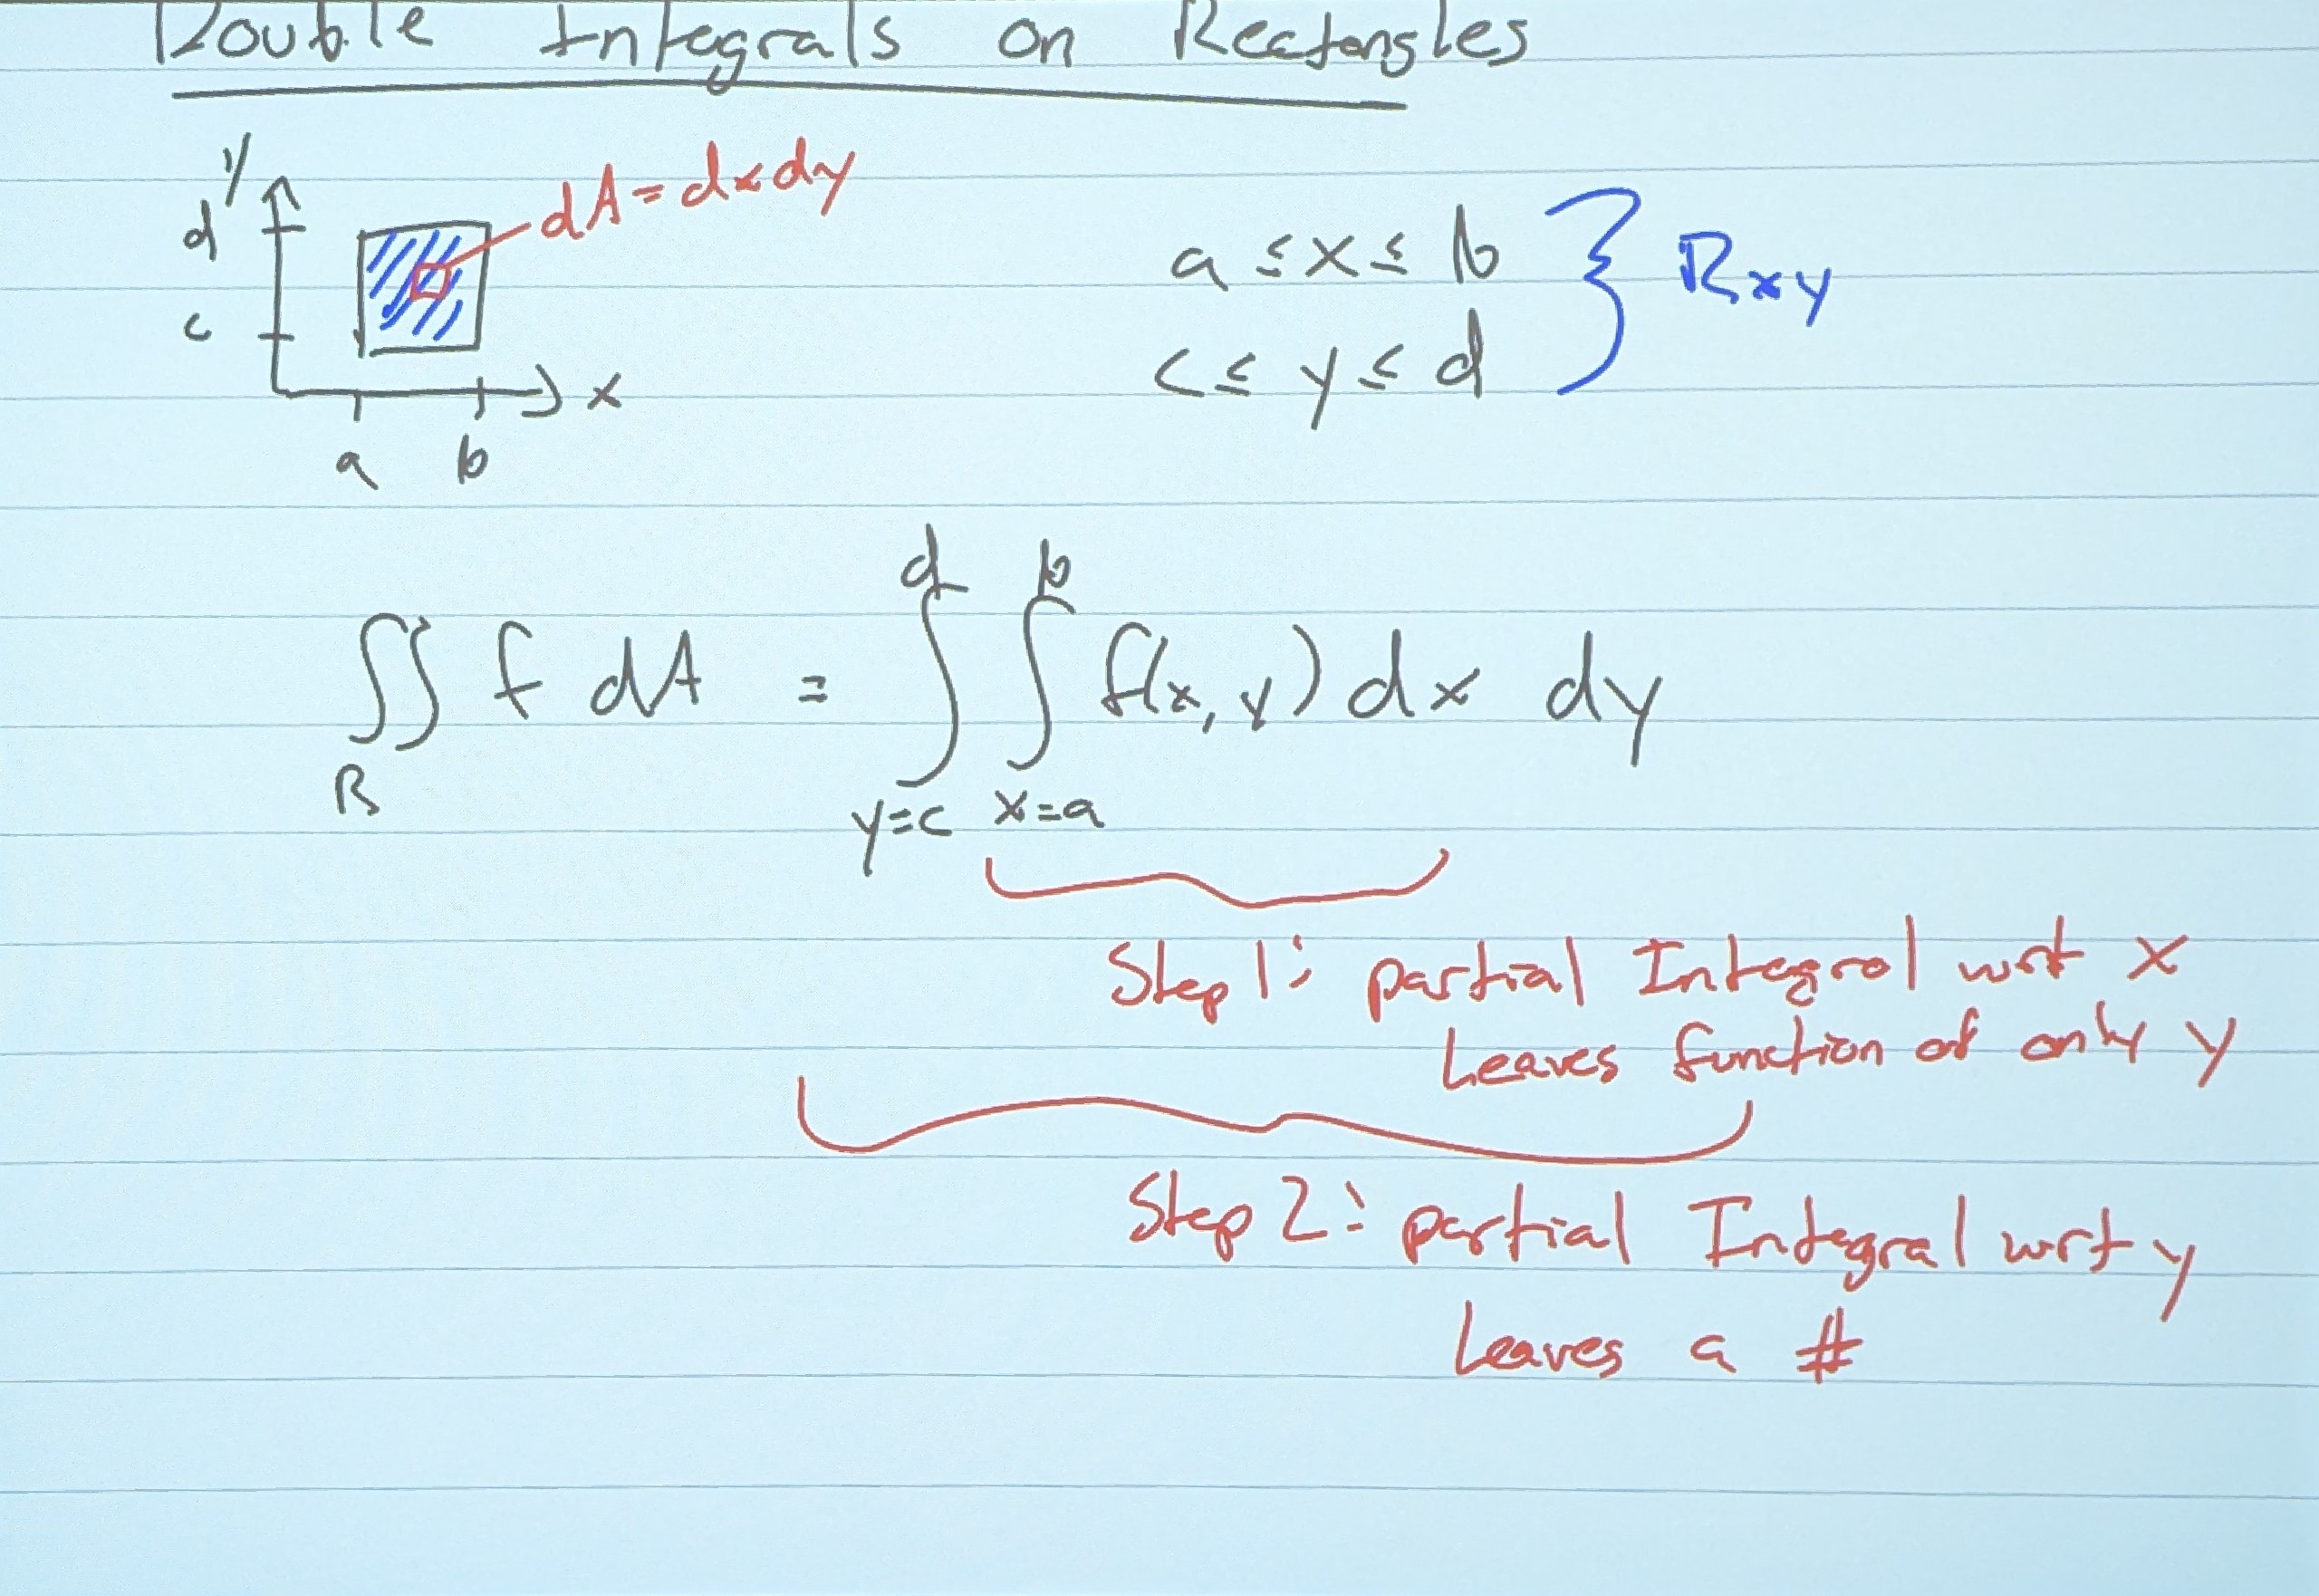 Double Integrals on Rectangles
y
d
c
a b
x
dA = dxdy
a ≤ x ≤ b
c ≤ y ≤ d
Rxy
∬_R f dA = ∫_{y=c}^{d} ∫_{x=a}^{b} f(x,y) dx dy
Step 1: partial Integral wrt x
Leaves function of only y
Step 2: partial Integral wrt y
Leaves a #